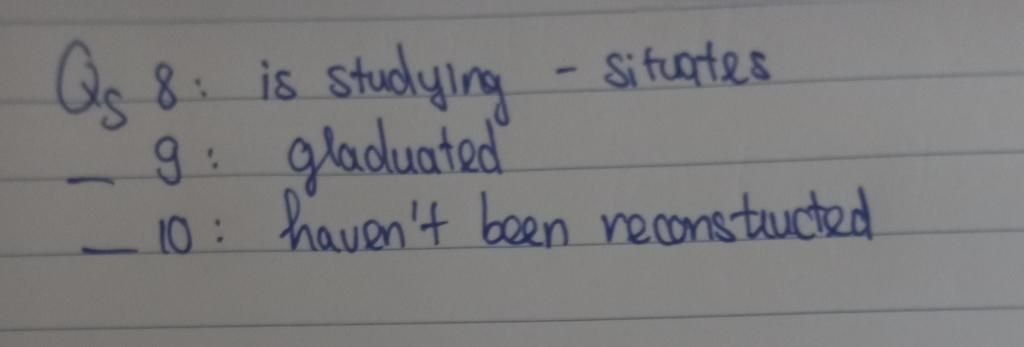 Qs 8: is studying - situates
_ 9: gladuated
_ 10: haven't been reconstructed